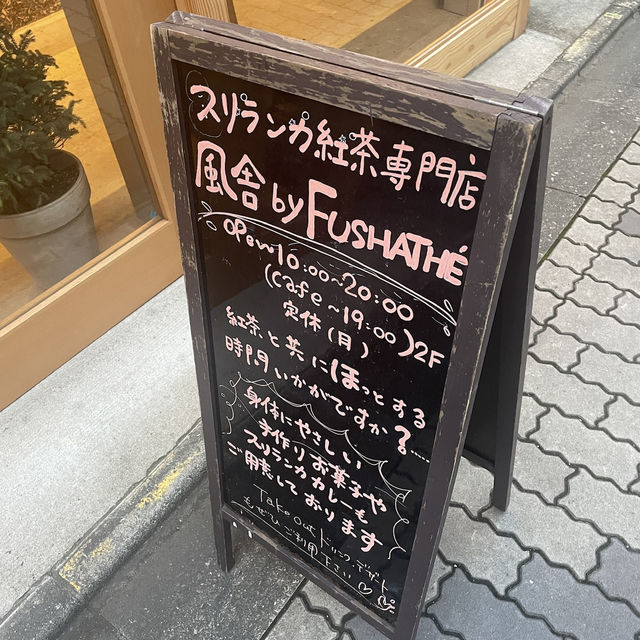 スリランカ紅茶専門店
風舎 by FUSHATHÉ
OPEN 10:00~20:00
(Cafe ~19:00)2F
定休(月)
紅茶と共にほっとする
時間いかがですか?....
身体にやさしい
手作りお菓子や
スリランカカレーも
ご用意しております
Take out ドリンク・デザート
もぜひご利用下さい♡